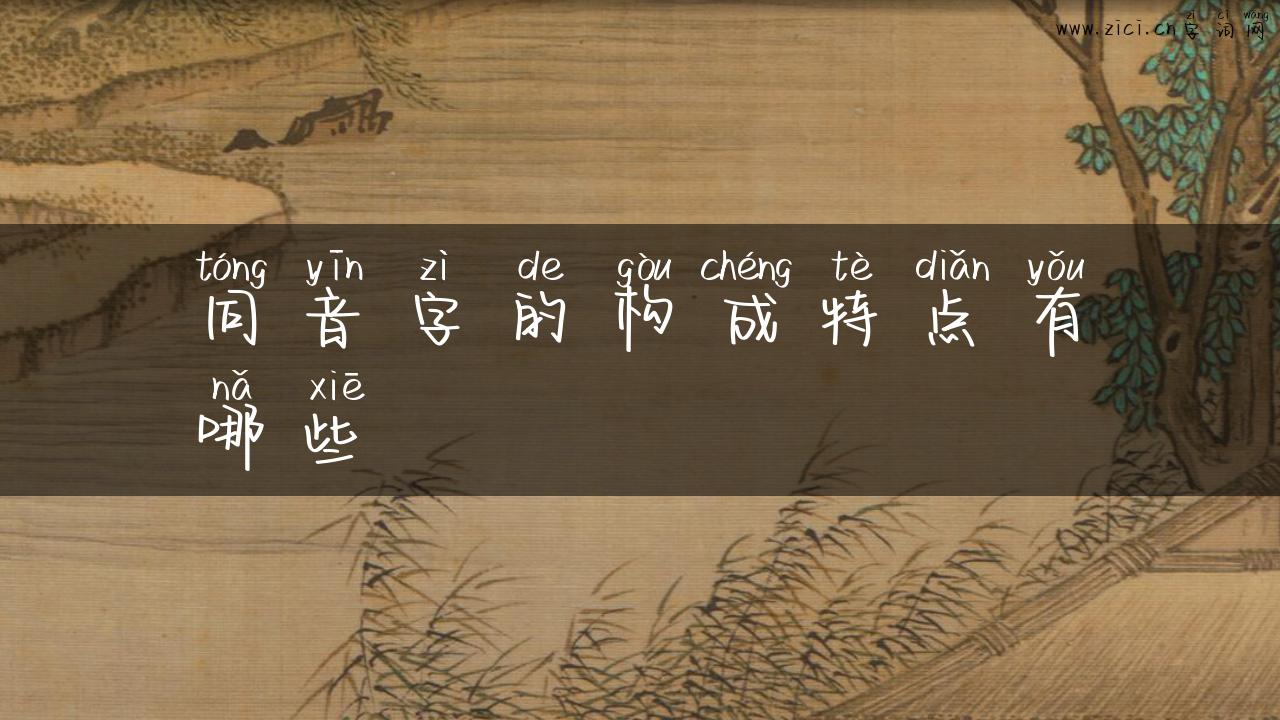 zì cí wǎng
www.zici.cn字词网
tóng yīn zì de gòu chéng tè diǎn yǒu
同音字的构成特点有
nǎ xiē
哪些